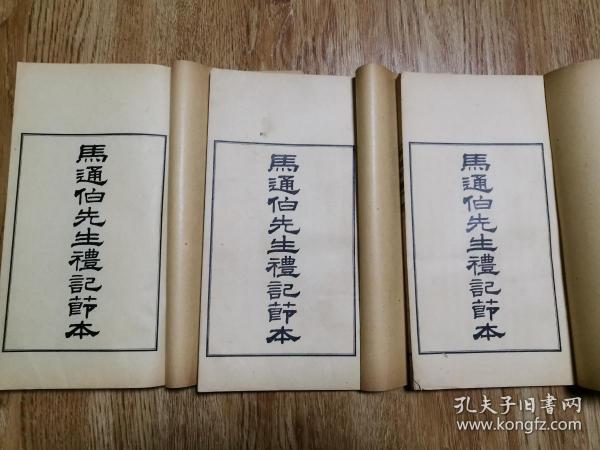 馬通伯先生禮記節本
馬通伯先生禮記節本
馬通伯先生禮記節本
孔夫子旧书网
www.kongfz.com